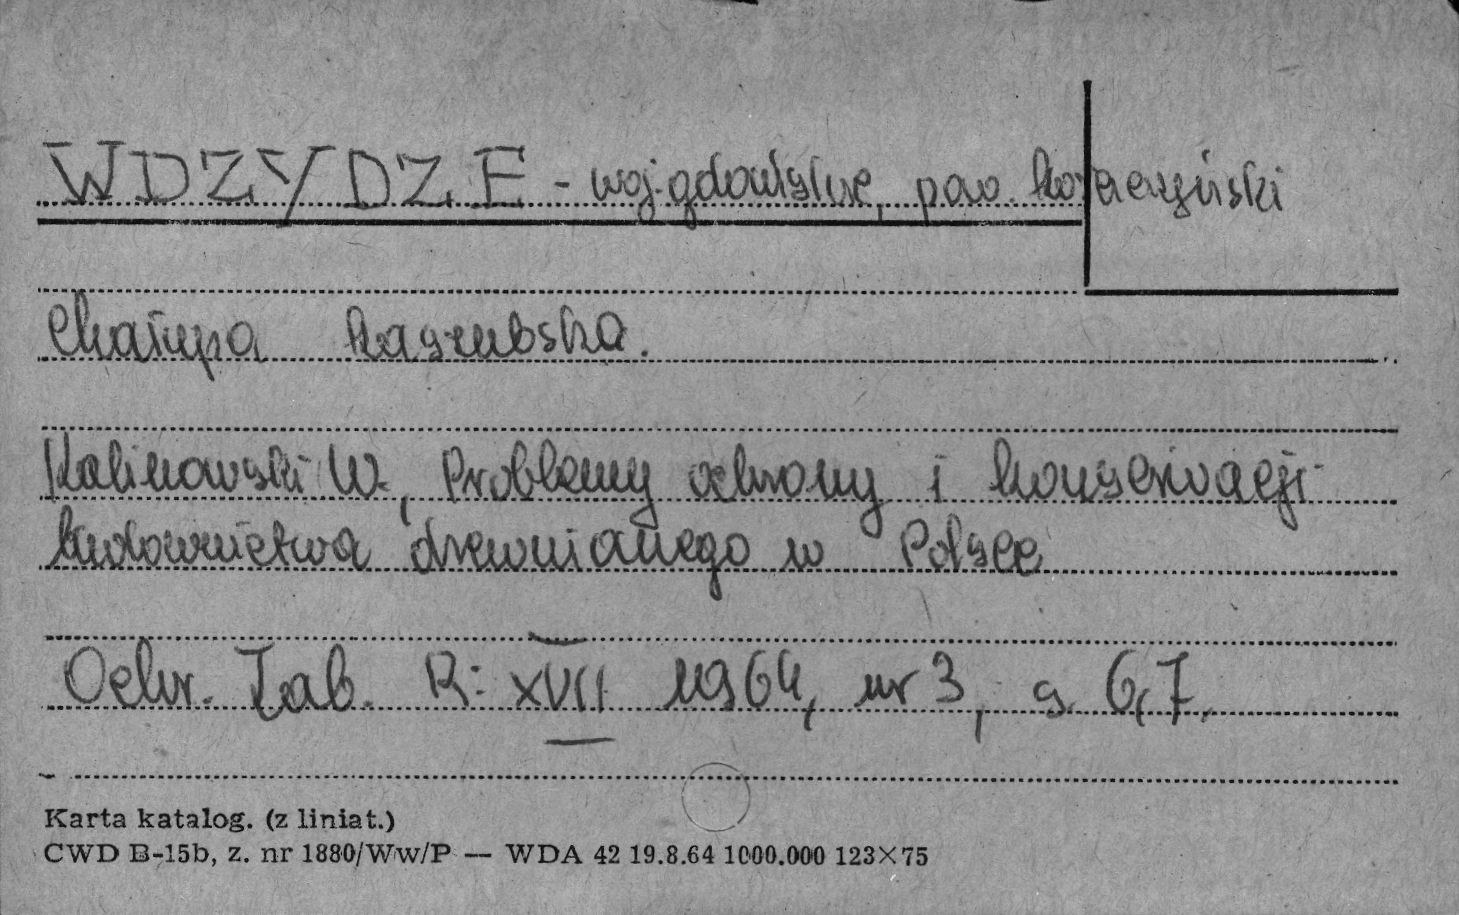 WDZYDZE - woj. gdańskie, pow. kościerzyński
Chałupa kaszubska.
Kalinowski W., Problemy ochrony i konserwacji
budownictwa drewnianego w Polsce
Ochr. Zab. R: XVII 1964, nr 3, s. 6,7.
Karta katalog. (z liniat.)
CWD B-15b, z. nr 1880/Ww/P — WDA 42 19.8.64 1000.000 123×75